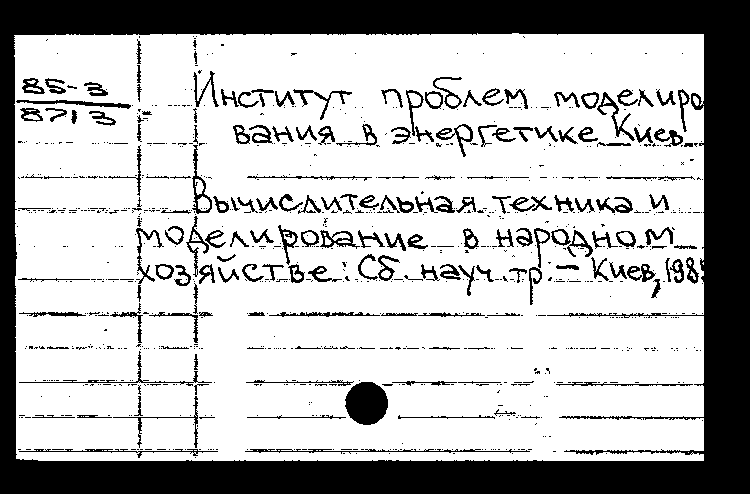 85-3
8713
Институт проблем моделиро
вания в энергетике Киев
Вычислительная техника и
моделирование в народном
хозяйстве: Сб. науч. тр. – Киев, 1985